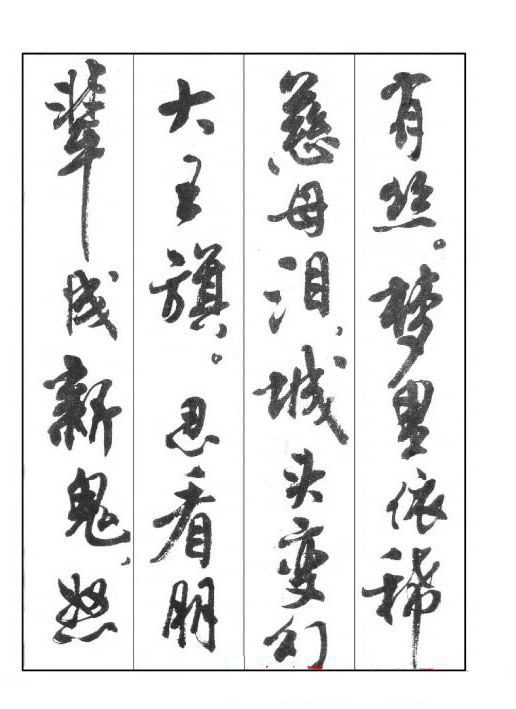 有丝。梦里依稀
慈母泪,城头变幻
大王旗。忍看朋
辈成新鬼,怒